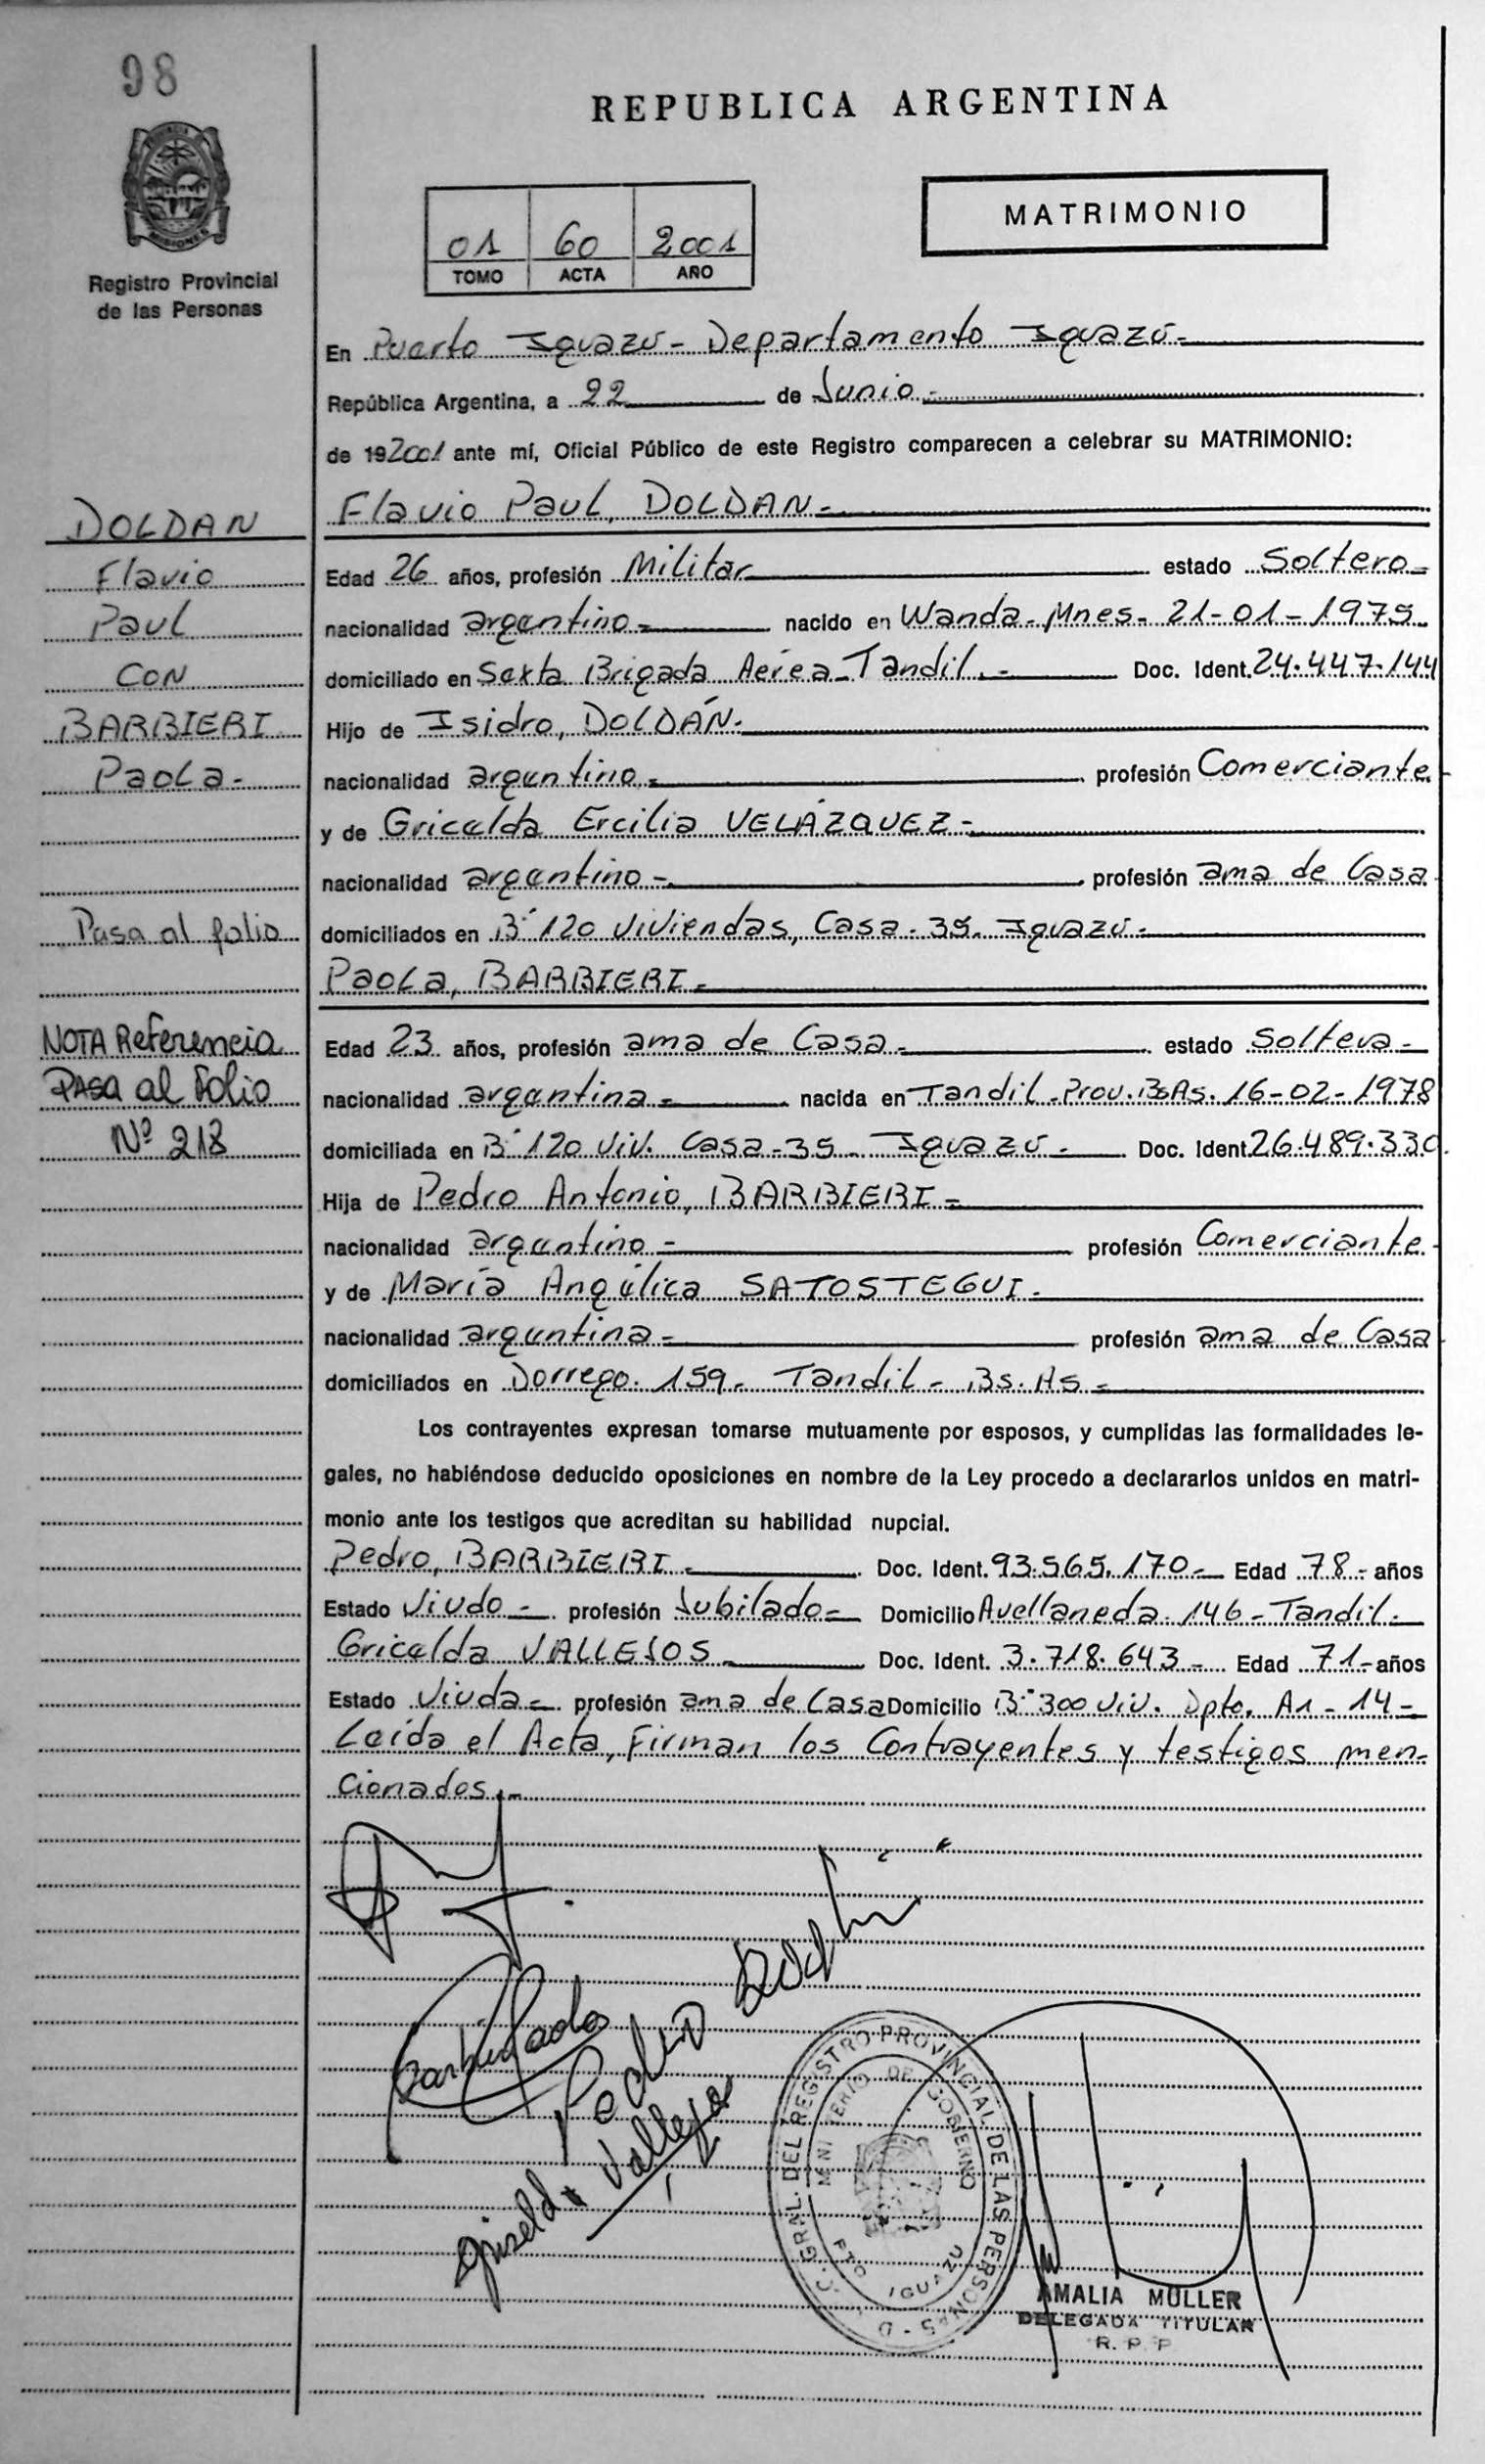 98
REPUBLICA ARGENTINA
MATRIMONIO
01 60 2001
TOMO ACTA AÑO
PROVINCIA
MISIONES
Registro Provincial
de las Personas
En Puerto Iguazú - Departamento Iguazú -
República Argentina, a 22 de Junio -
de 192001 ante mí, Oficial Público de este Registro comparecen a celebrar su MATRIMONIO:
Flavio Paul, DOLDAN -
DOLDAN
Flavio
Paul
CON
BARBIERI
Paola -
Pasa al folio
NOTA Referencia
PASA al Folio
Nº 218
Edad 26 años, profesión Militar estado Soltero -
nacionalidad argentino - nacido en Wanda - Mnes - 21-01-1975
domiciliado en Sexta Brigada Aérea - Tandil. - Doc. Ident. 24.447.144
Hijo de Isidro, DOLDÁN.
nacionalidad argentino - profesión Comerciante -
y de Gricelda Ercilia VELÁZQUEZ -
nacionalidad argentino - profesión ama de Casa -
domiciliados en Bº 120 Viviendas, Casa - 35 - Iguazú -
Paola, BARBIERI -
Edad 23 años, profesión ama de Casa - estado Soltera -
nacionalidad argentina - nacida en Tandil - Prov. Bs As. 16-02-1978
domiciliada en Bº 120 Viv. Casa - 35 - Iguazú - Doc. Ident. 26.489.330.
Hija de Pedro Antonio, BARBIERI -
nacionalidad argentino - profesión Comerciante -
y de María Angélica SATOSTEGUI -
nacionalidad argentina - profesión ama de Casa -
domiciliados en Dorrego. 159 - Tandil - Bs. As -
Los contrayentes expresan tomarse mutuamente por esposos, y cumplidas las formalidades le-
gales, no habiéndose deducido oposiciones en nombre de la Ley procedo a declararlos unidos en matri-
monio ante los testigos que acreditan su habilidad nupcial.
Pedro, BARBIERI - Doc. Ident. 93.565.170 - Edad 78 - años
Estado Viudo - profesión Jubilado - Domicilio Avellaneda 146 - Tandil -
Gricelda VALLEJOS - Doc. Ident. 3.718.643 - Edad 71 - años
Estado Viuda - profesión ama de Casa Domicilio Bº 300 Viv. Dpto. A1 - 14 -
Leída el Acta, Firman los Contrayentes y testigos men-
cionados -
Pedro
Griselda Vallejos
GRAL. DEL REGISTRO PROVINCIAL DE LAS PERSONAS
MINISTERIO DE GOBIERNO
PTO IGUAZU
AMALIA MULLER
DELEGADA TITULAR
R. P. P